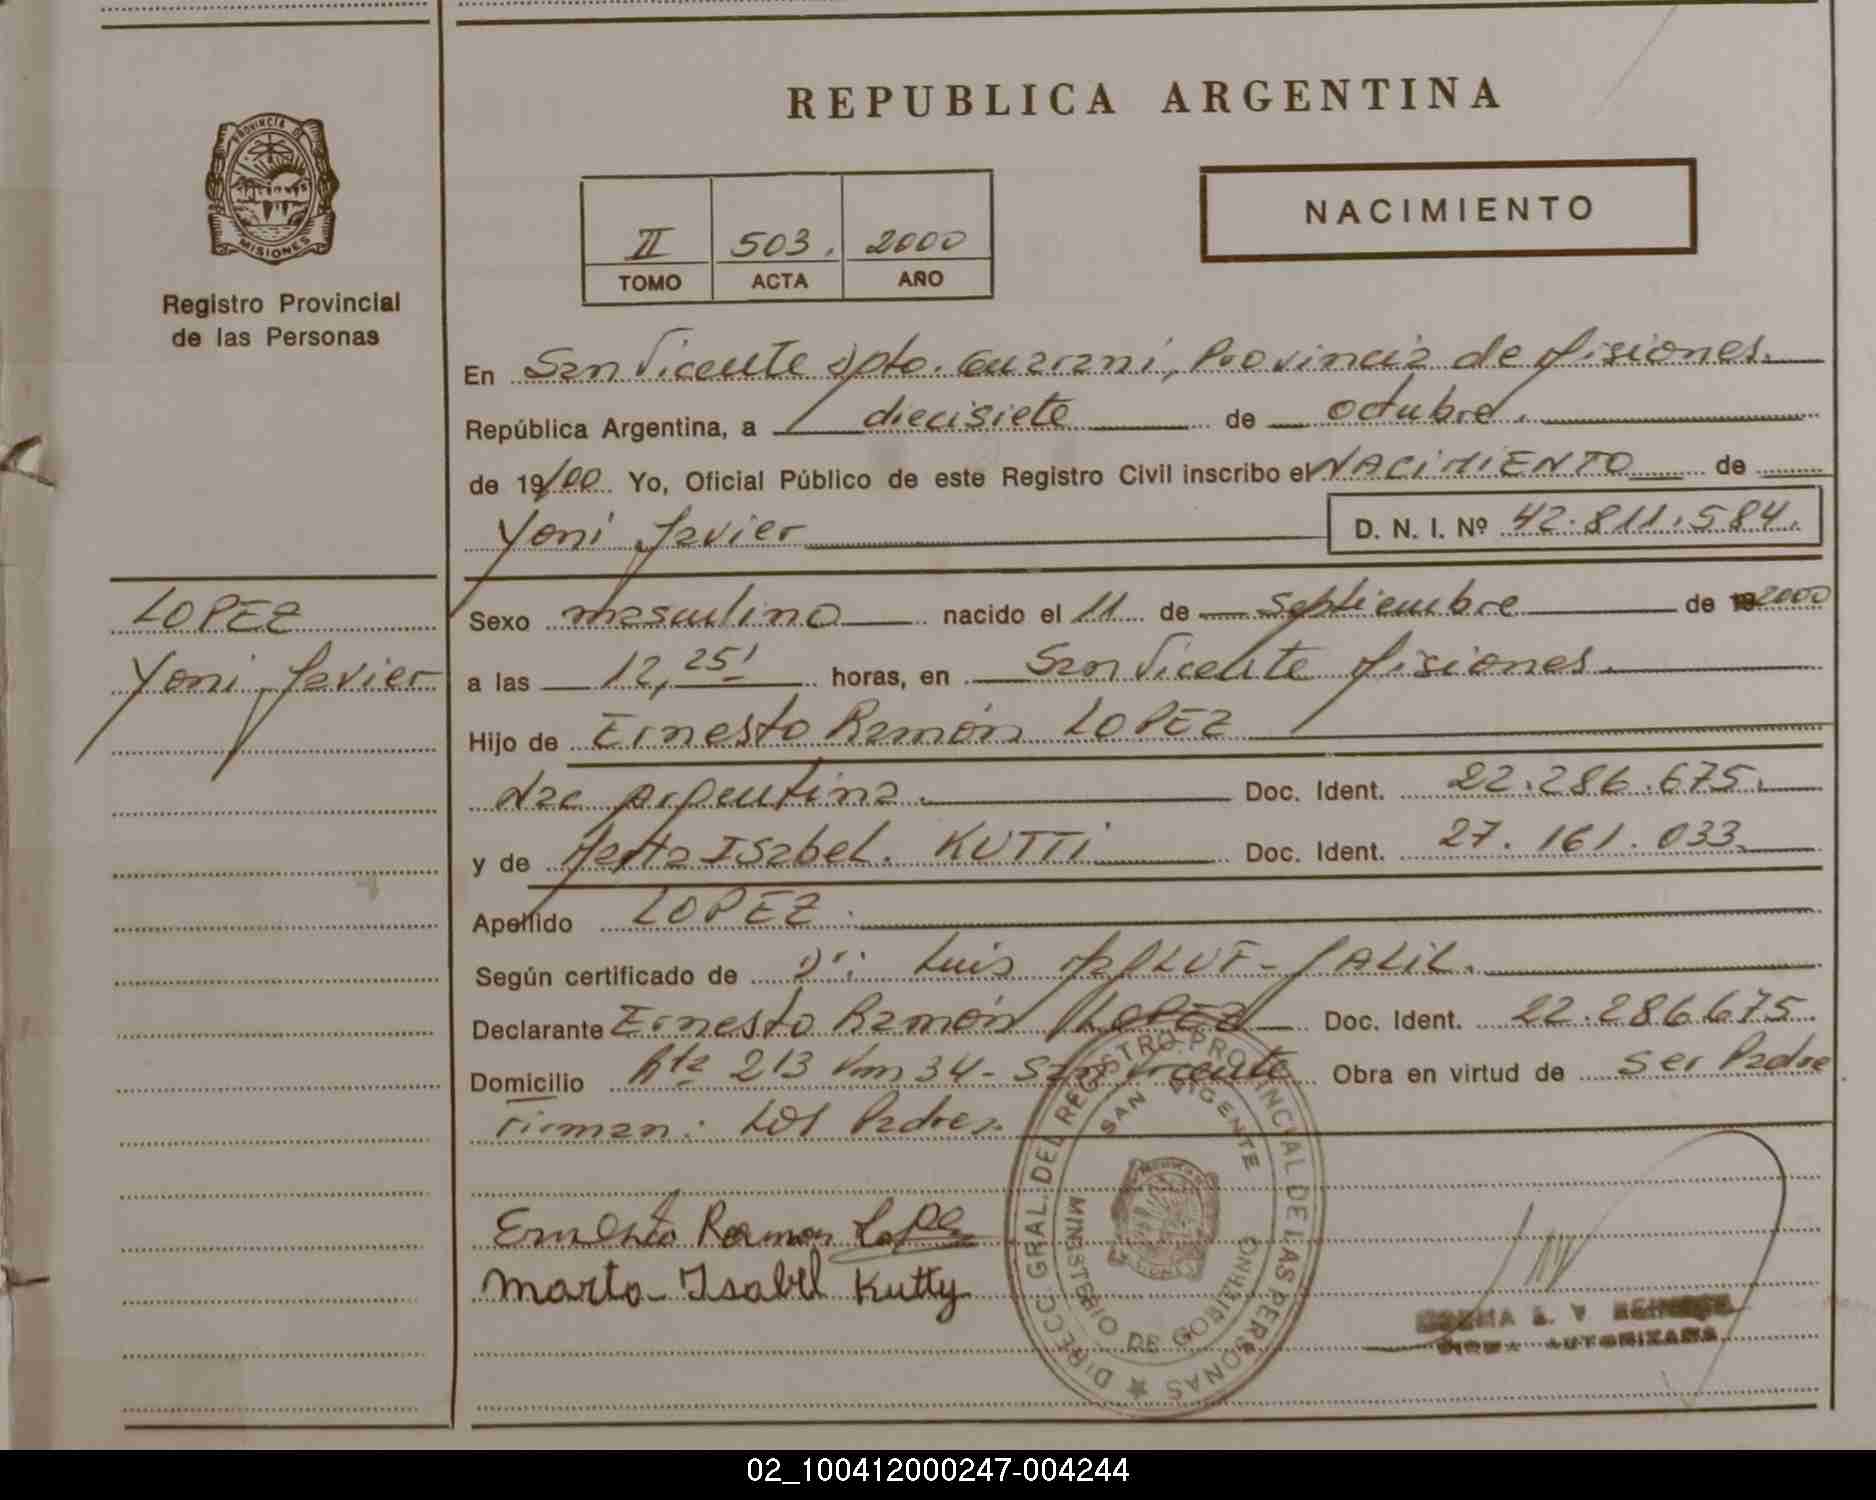 REPUBLICA ARGENTINA
PROVINCIA DE
MISIONES
Registro Provincial
de las Personas
II 503. 2000
TOMO ACTA AÑO
NACIMIENTO
En San Vicente Dpto. Guarani, Provincia de Misiones.
República Argentina, a diecisiete de octubre.
de 19/00 Yo, Oficial Público de este Registro Civil inscribo el NACIMIENTO de
Yoni Javier D. N. I. Nº 42.811.584.
LOPEZ
Yoni Javier
Sexo masculino nacido el 11 de Septiembre de 2000
a las 12,25' horas, en San Vicente Misiones.
Hijo de Ernesto Ramón LOPEZ
Nac Argentina. Doc. Ident. 22.286.675.
y de Marta ISabel. KUTTi Doc. Ident. 27.161.033.
Apellido LOPEZ.
Según certificado de Dr: Luis JALIL.
Declarante Ernesto Ramón LOPEZ Doc. Ident. 22.286.675.
Domicilio Rta 213 Km 34- San Vicente Obra en virtud de Ser Padre
Firman: Los Padres.
Ernesto Ramon Lopez
Marta Isabel Kutty
DIRECC. GRAL. DEL REGISTRO PROVINCIAL DE LAS PERSONAS
SAN VICENTE
MINISTERIO DE GOBIERNO
FIRMA AUTORIZADA
02_100412000247-004244